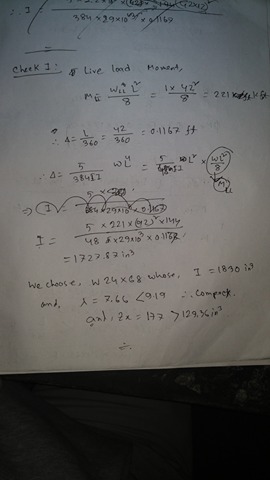 ∴ I =
384×29×10³×0.1167
Check I: Live load Moment,
M_LL = W_LL L²/8 = 1×42²/8 = 221 k ft
∴ Δ = L/360 = 42/360 = 0.1167 ft
∴ Δ = 5/384EI WL⁴ = 5/48EI L² × WL²/8
M_LL
⇒ I = 5 × / 384×29×10³×0.1167
I = 5 × 221 × (42)² × 144 / 48 × 29×10³ × 0.1167
= 1727.87 in³
We choose, W 24×68 whose, I = 1830 in⁴
and, λ = 7.66 < 9.19 ∴ Compact.
and, Zx = 177 > 129.36 in³
∴